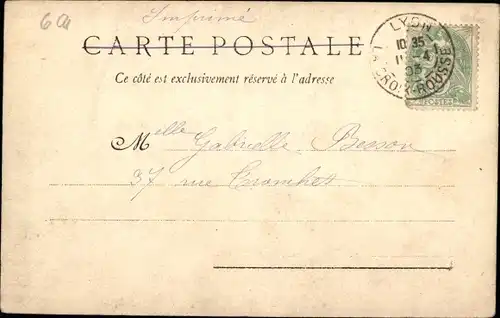 6 a
Imprimé
CARTE POSTALE
Ce côté est exclusivement réservé à l'adresse
LYON
10 35
11 4
03
LA CROIX-ROUSSE
POSTES
Melle Gabrielle Besson
37 rue Cronhet